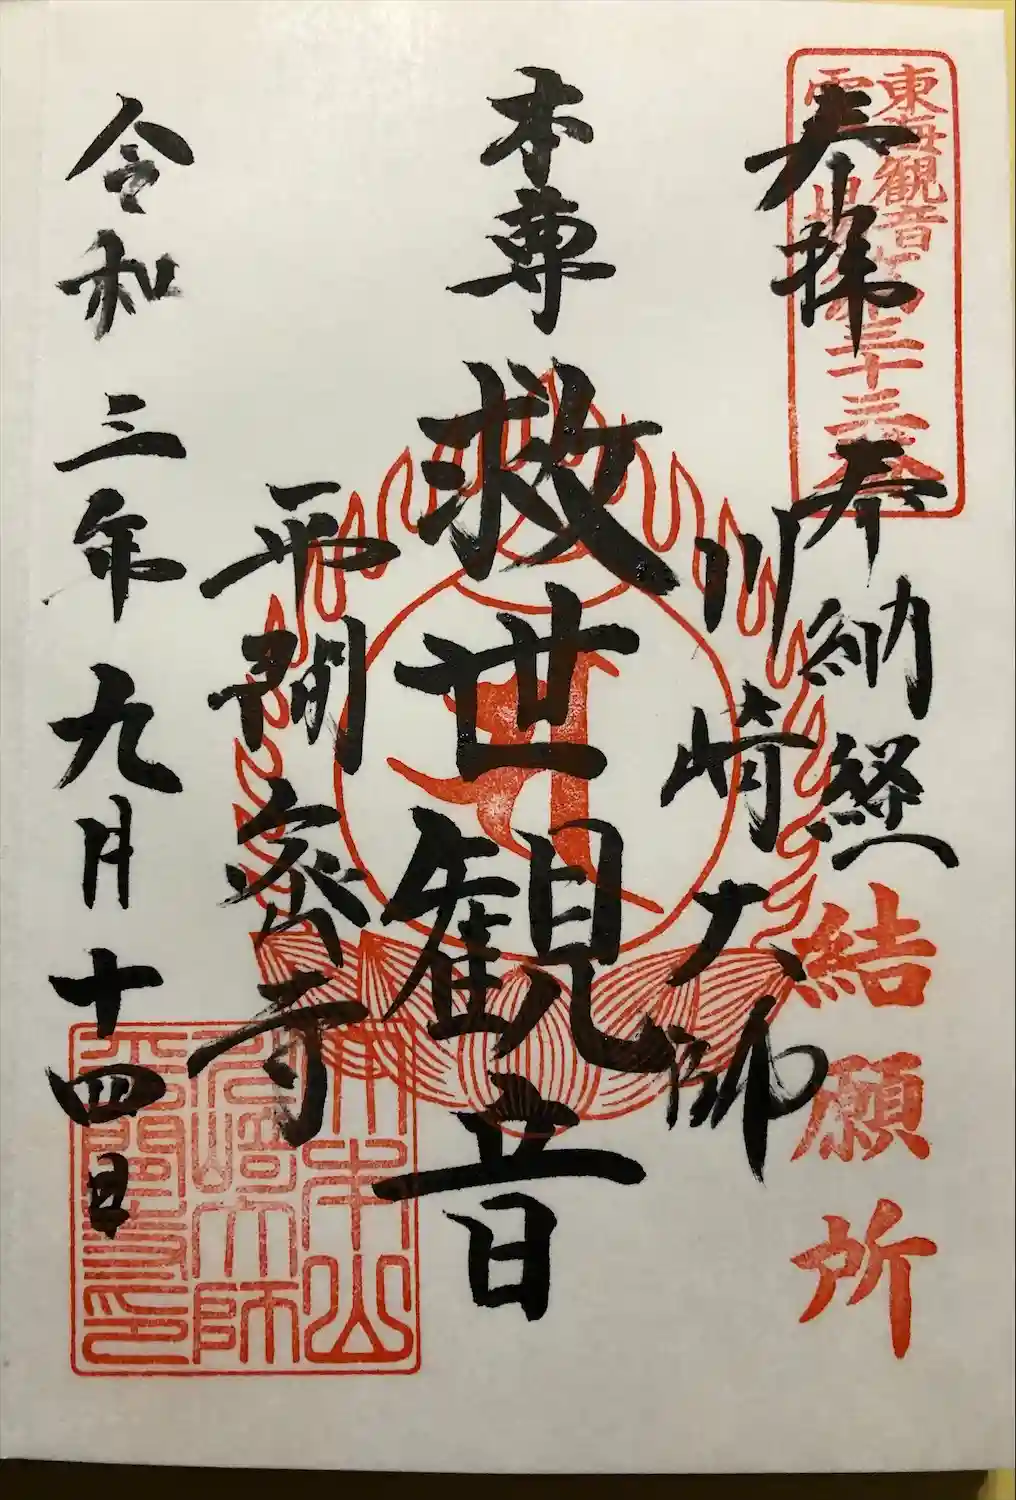 東海観音
霊場第三十三番
奉拝
奉納経
結願所
川崎大師
本尊
救世観音
平間寺
令和三年九月十四日
大本山
川崎大師
平間寺印